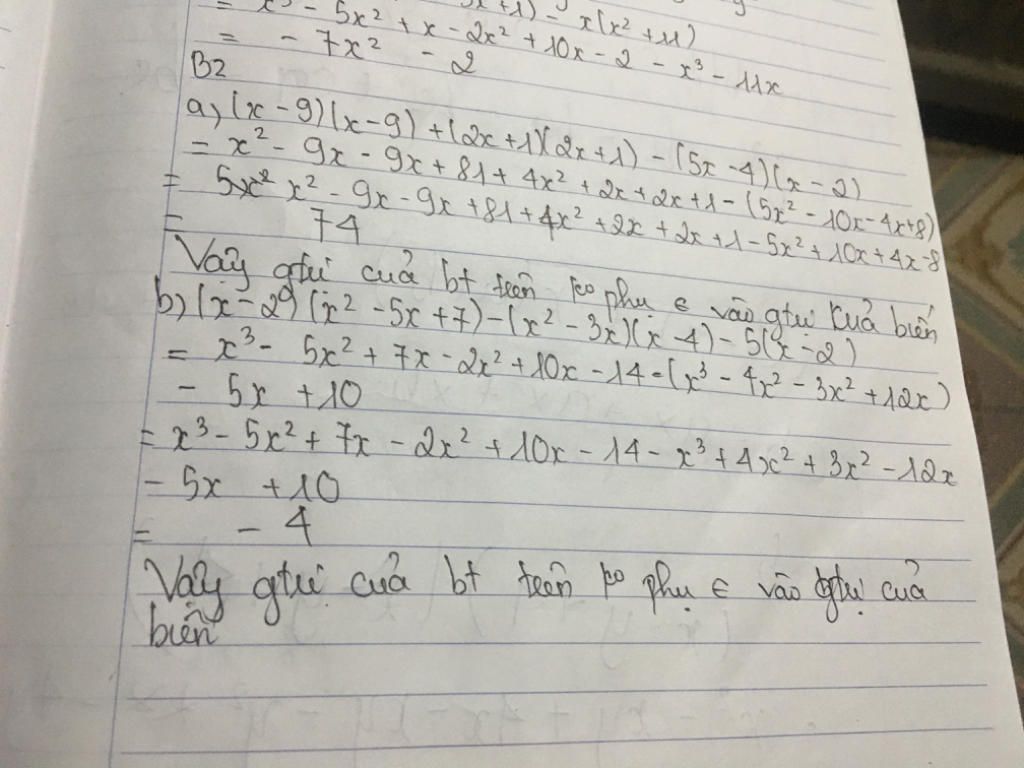 = x³ - 5x² + x - 2x² + 10x - 2 - x³ - 11x
= - 7x² - 2
B2
a) (x - 9)(x - 9) + (2x + 1)(2x + 1) - (5x - 4)(x - 2)
= x² - 9x - 9x + 81 + 4x² + 2x + 2x + 1 - (5x² - 10x - 4x + 8)
= x² - 9x - 9x + 81 + 4x² + 2x + 2x + 1 - 5x² + 10x + 4x - 8
= 74
Vậy gtrị của bt trên ko phụ ∈ vào gtrị của biến
b) (x - 2)(x² - 5x + 7) - (x² - 3x)(x - 4) - 5(x - 2)
= x³ - 5x² + 7x - 2x² + 10x - 14 - (x³ - 4x² - 3x² + 12x)
- 5x + 10
= x³ - 5x² + 7x - 2x² + 10x - 14 - x³ + 4x² + 3x² - 12x
- 5x + 10
= - 4
Vậy gtrị của bt trên ko phụ ∈ vào gtrị của
biến